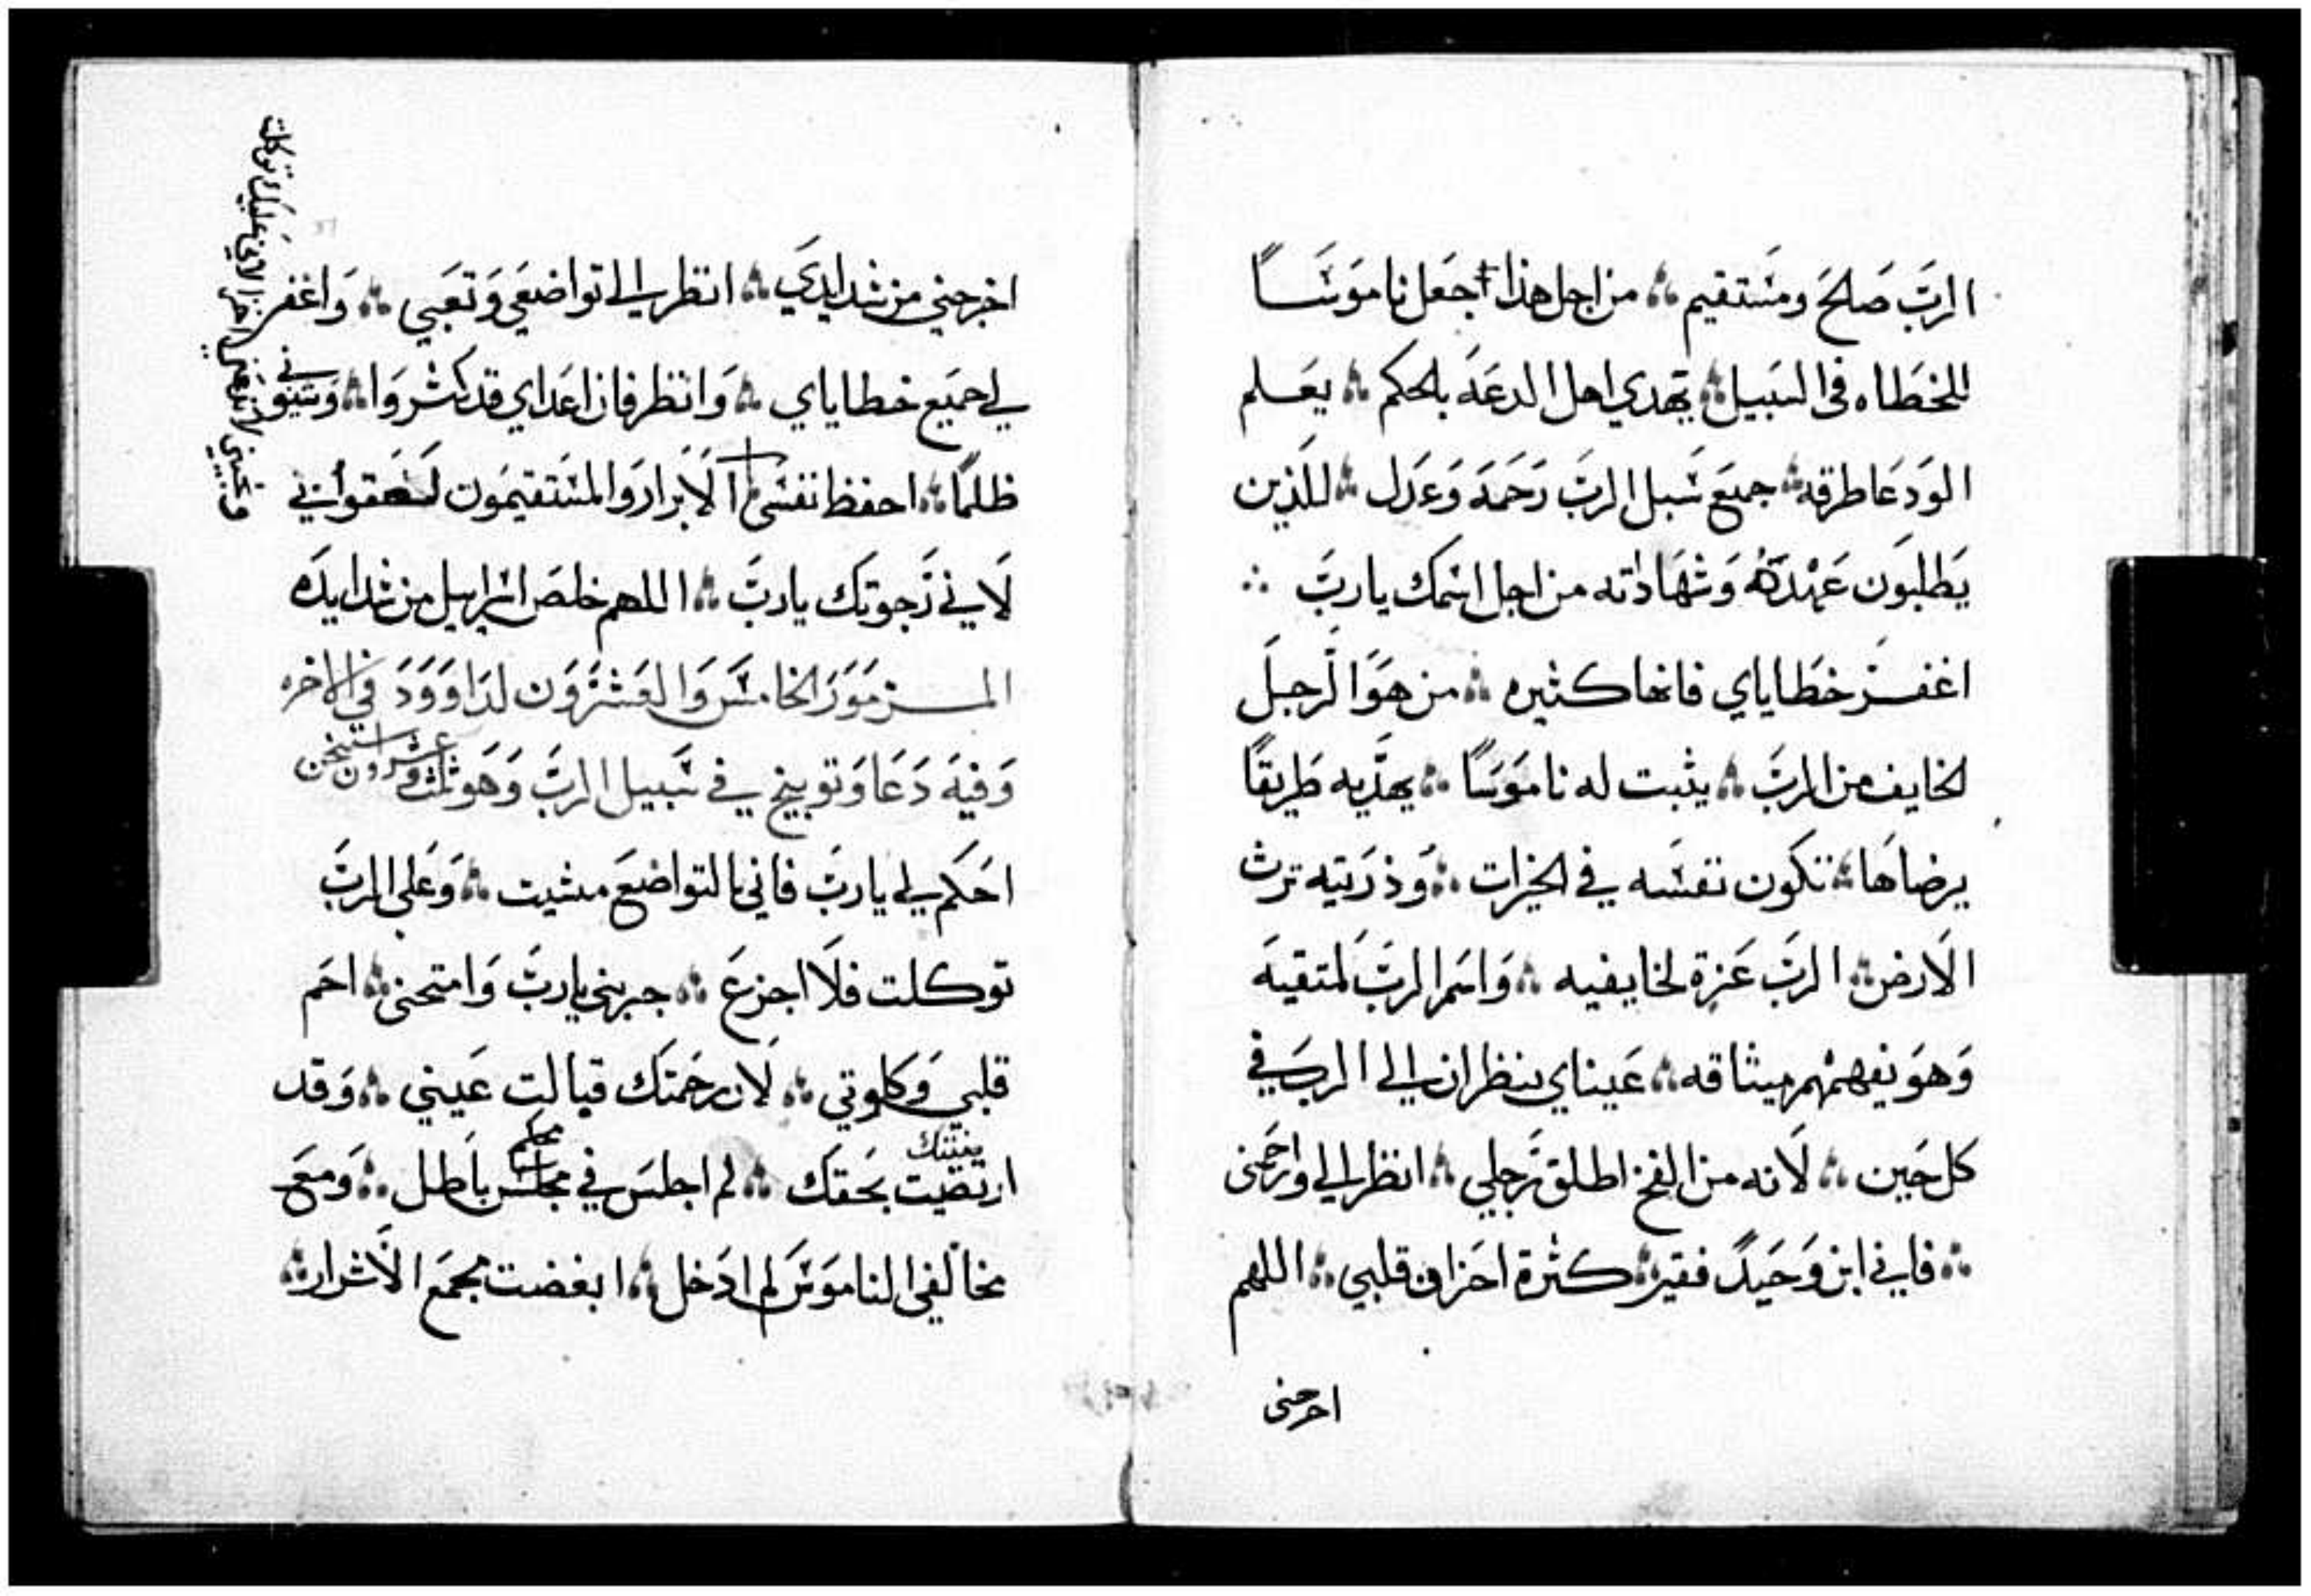 الربَّ صَالحَ ومسَتقيم ؞ من اجل هذا اجعَل نامَوسَاً
للخَطاه في السَبيل ؞ يَهدي اهل الدعَه بالحكم ؞ يعَلم
الوَدعَا طرقه ؞ جميعَ سَبل الربَّ رَحمَه وَعدَل ؞ للَّذين
يَطلبوَن عَهْدَهُ وَشهَاداته من اجل اسَمك ياربَّ ؞
اغفرَ خطَاياي فانها كثيره ؞ من هوَ الَرجلَ
الخايف من الربَّ ؞ يثبت له نامَوسَاً ؞ يهدَّيه طَريقاً
يرضاهَا ؞ تتكَون نفسَه في الخيرات ؞ وَذرَيته ترث
الَارض ؞ الربَّ عَزة لخايفيه ؞ وَاسَم الربَّ لمتقيهَ
وَهوَ يفهمْهم ميثاقه ؞ عَيناي ينظران الي الربَ في
كل حَين ؞ لَانه من الفخ اطلق رَجلي ؞ انظر الي وارحَمني
؞ فاني ابن وَحَيدً فقير ؞ كثرة احَزان قلبي ؞ اللهم
اخرجني
اخرجني من شدايدَي ؞ انظر الي تواضعَي وَتعَبي ؞ وَاغفر
لي جميَع خطاياي ؞ وَانظر فان اعَداي قد كثروَا ؞ وَشنيوني
ظلماً ؞ احفظ نفسَي الَابرار وَالمسَتقيمَون لصَقوا بي
لَاني رَجوتك ياربَّ ؞ اللهم خلصَ اسَراييل من شدايدَه
المزمَورَ الخامسَ وَالعَشرَوَن لدَاوَوَدَ في الاخره
وَفيهَ دَعَا وَتوبيخ في سَبيل الربَّ وَهوَ ثلث وعشرون استيخن
احَكم لي ياربَ فاني بالتواضعَ مشيت ؞ وَعَلي الربَّ
توكلت فلَا اجزعَ ؞ جربني ياربَّ وَامتحني ؞ احَم
قلبي وَكلوتي ؞ لَان رحَمتَك قبالت عَيني ؞ وَقد
ارتضيت بحَقك ؞ لم اجلسَ في مجلسَ باَطل ؞ وَمعَ
مخالفي النامَوسَ لم ادَخل ؞ ابغضت مجمَع الَاشرار ؞
ونجيني لا تخزيني لاني عليك توكلت